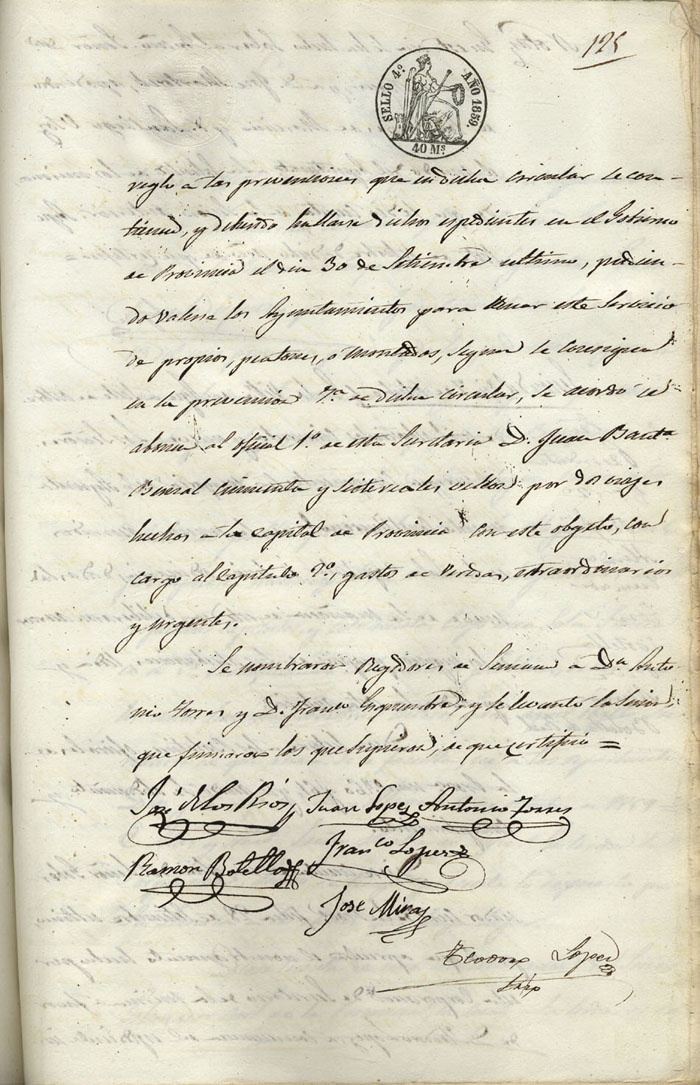 125
SELLO 4º AÑO 1859.
40 Ms
reglo a las prevenciones que en dicha circular se con-
tienen, y debiendo hallarse dichos espedientes en el Gobierno
de Provincia el dia 30 de Setiembre ultimo, pudien-
do valerse los Ayuntamientos para llenar este Servicio
de propios, peatones, o montados, segun se consigna
en la prevencion 7ª de dicha circular, se acordó se
abone al oficial 1º de esta Secretaria D. Juan Bautª
Bernal cincuenta y siete reales vellon por dos viajes
hechos a la capital de Provincia con este objeto, con
cargo al Capitulo 9º, gastos de Veredas, extraordinarios
y urgentes.
Se nombraron Regidores de Semana a Dn Anto
nio Torres y D. Franco y se levantó la Sesion,
que firmaron los que supieron, de que certifico =
José de los Rios Juan Lopez Antonio Torres
Ramon Botella Franco Lopez
José Miras
Teodoro Lopez
Srio